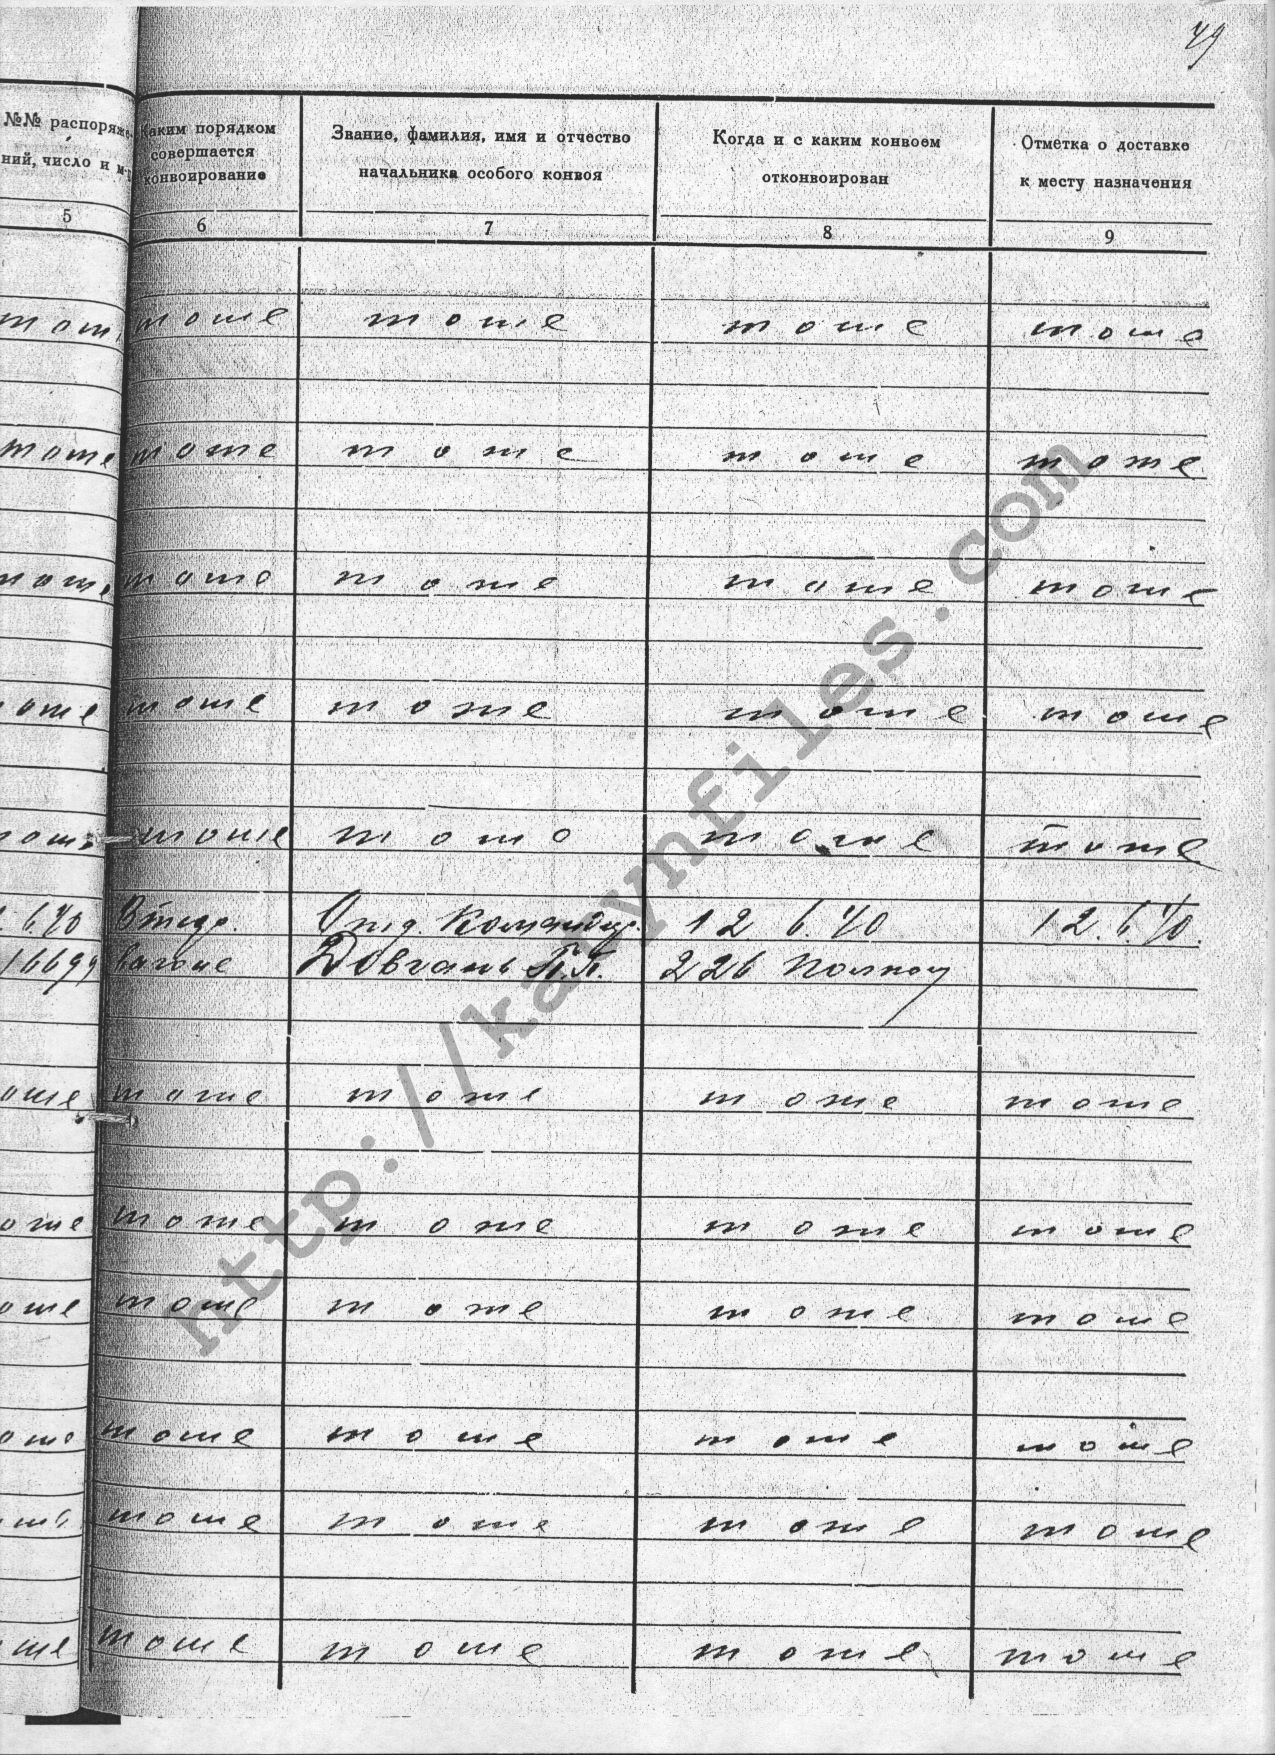 49
№№ распоряже-
ний, число и м-ц
Каким порядком
совершается
конвоирование
Звание, фамилия, имя и отчество
начальника особого конвоя
Когда и с каким конвоем
отконвоирован
Отметка о доставке
к месту назначения
5 6 7 8 9
тоже тоже тоже тоже
тоже тоже тоже тоже тоже
тоже тоже тоже тоже
тоже тоже тоже тоже
тоже тоже тоже тоже
6.40 Отд. Командир. 12. 6. 40 12. 6. 40.
16699 вагоне Довгань П.П. 226 полком
тоже тоже тоже тоже
тоже тоже тоже тоже
тоже тоже тоже тоже
тоже тоже тоже тоже
тоже тоже тоже тоже
тоже тоже тоже тоже
http://katynfiles.com